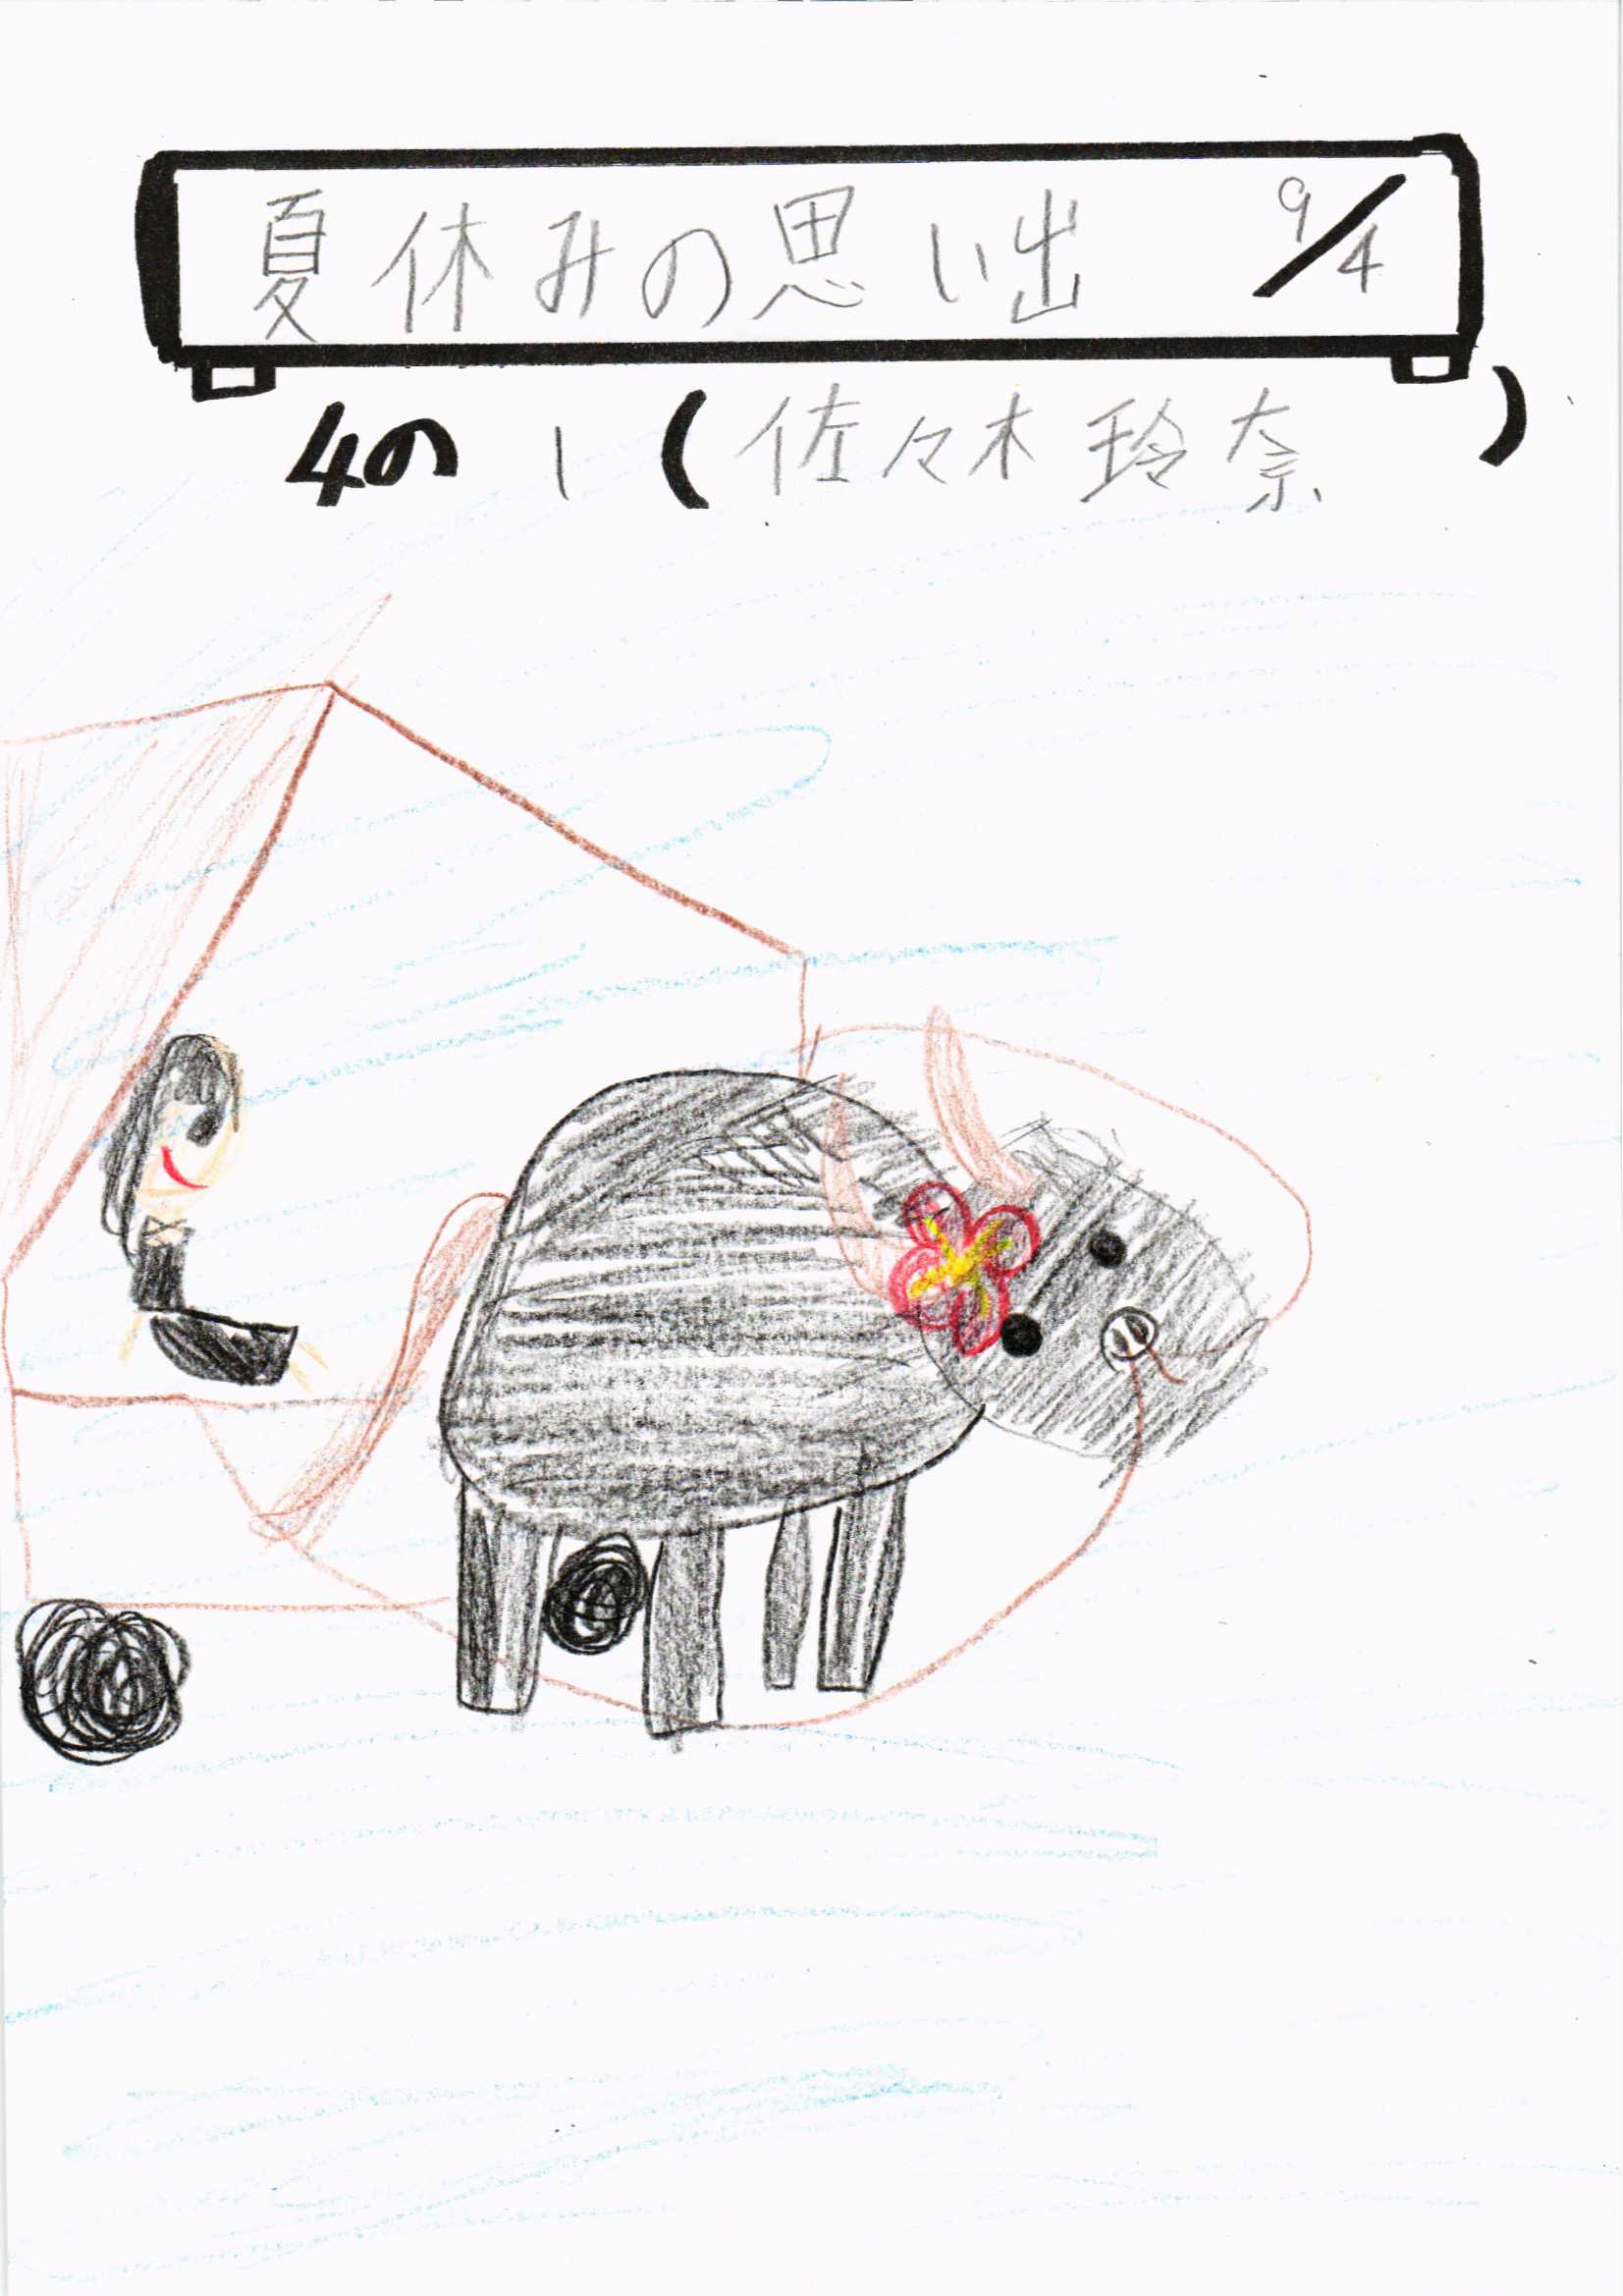 夏休みの思い出 9/4
4の1(佐々木玲奈)